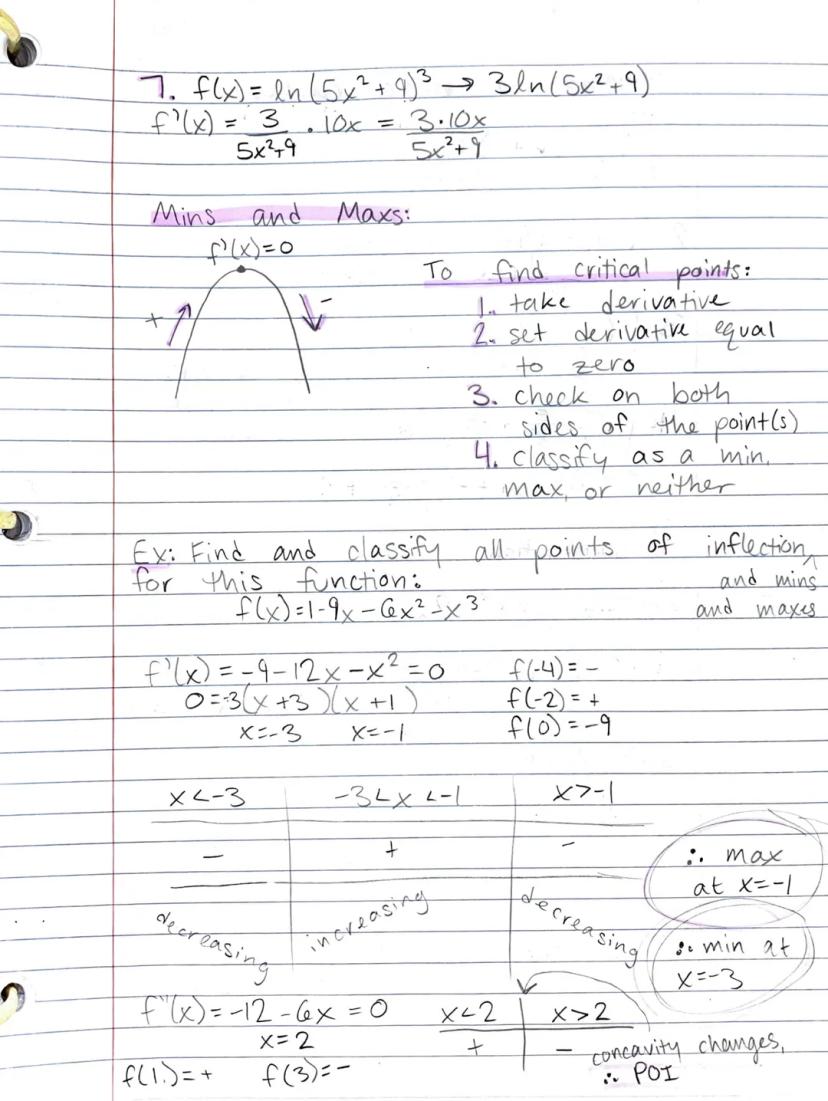 7. f(x) = ln(5x²+9)³ → 3ln(5x²+9)
f'(x) = 3/(5x²+9) · 10x = 3·10x/(5x²+9)
Mins and Maxs:
f'(x)=0
+
-
To find critical points:
1. take derivative
2. set derivative equal
to zero
3. check on both
sides of the point(s)
4. classify as a min,
max, or neither
Ex: Find and classify all points of inflection ^
and mins
and maxes
for this function:
f(x)=1-9x-6x²-x³
f'(x) = -9-12x-x² = 0
0=-3(x+3)(x+1)
x=-3 x=-1
f(-4) = -
f(-2) = +
f(0) = -9
x<-3 -3<x<-1 x>-1
- + -
decreasing increasing decreasing
∴ max
at x=-1
∴ min at
x=-3
f"(x) = -12-6x = 0
x=2
f(1.)=+ f(3)=-
x<2 x>2
+ -
concavity changes,
∴ POI